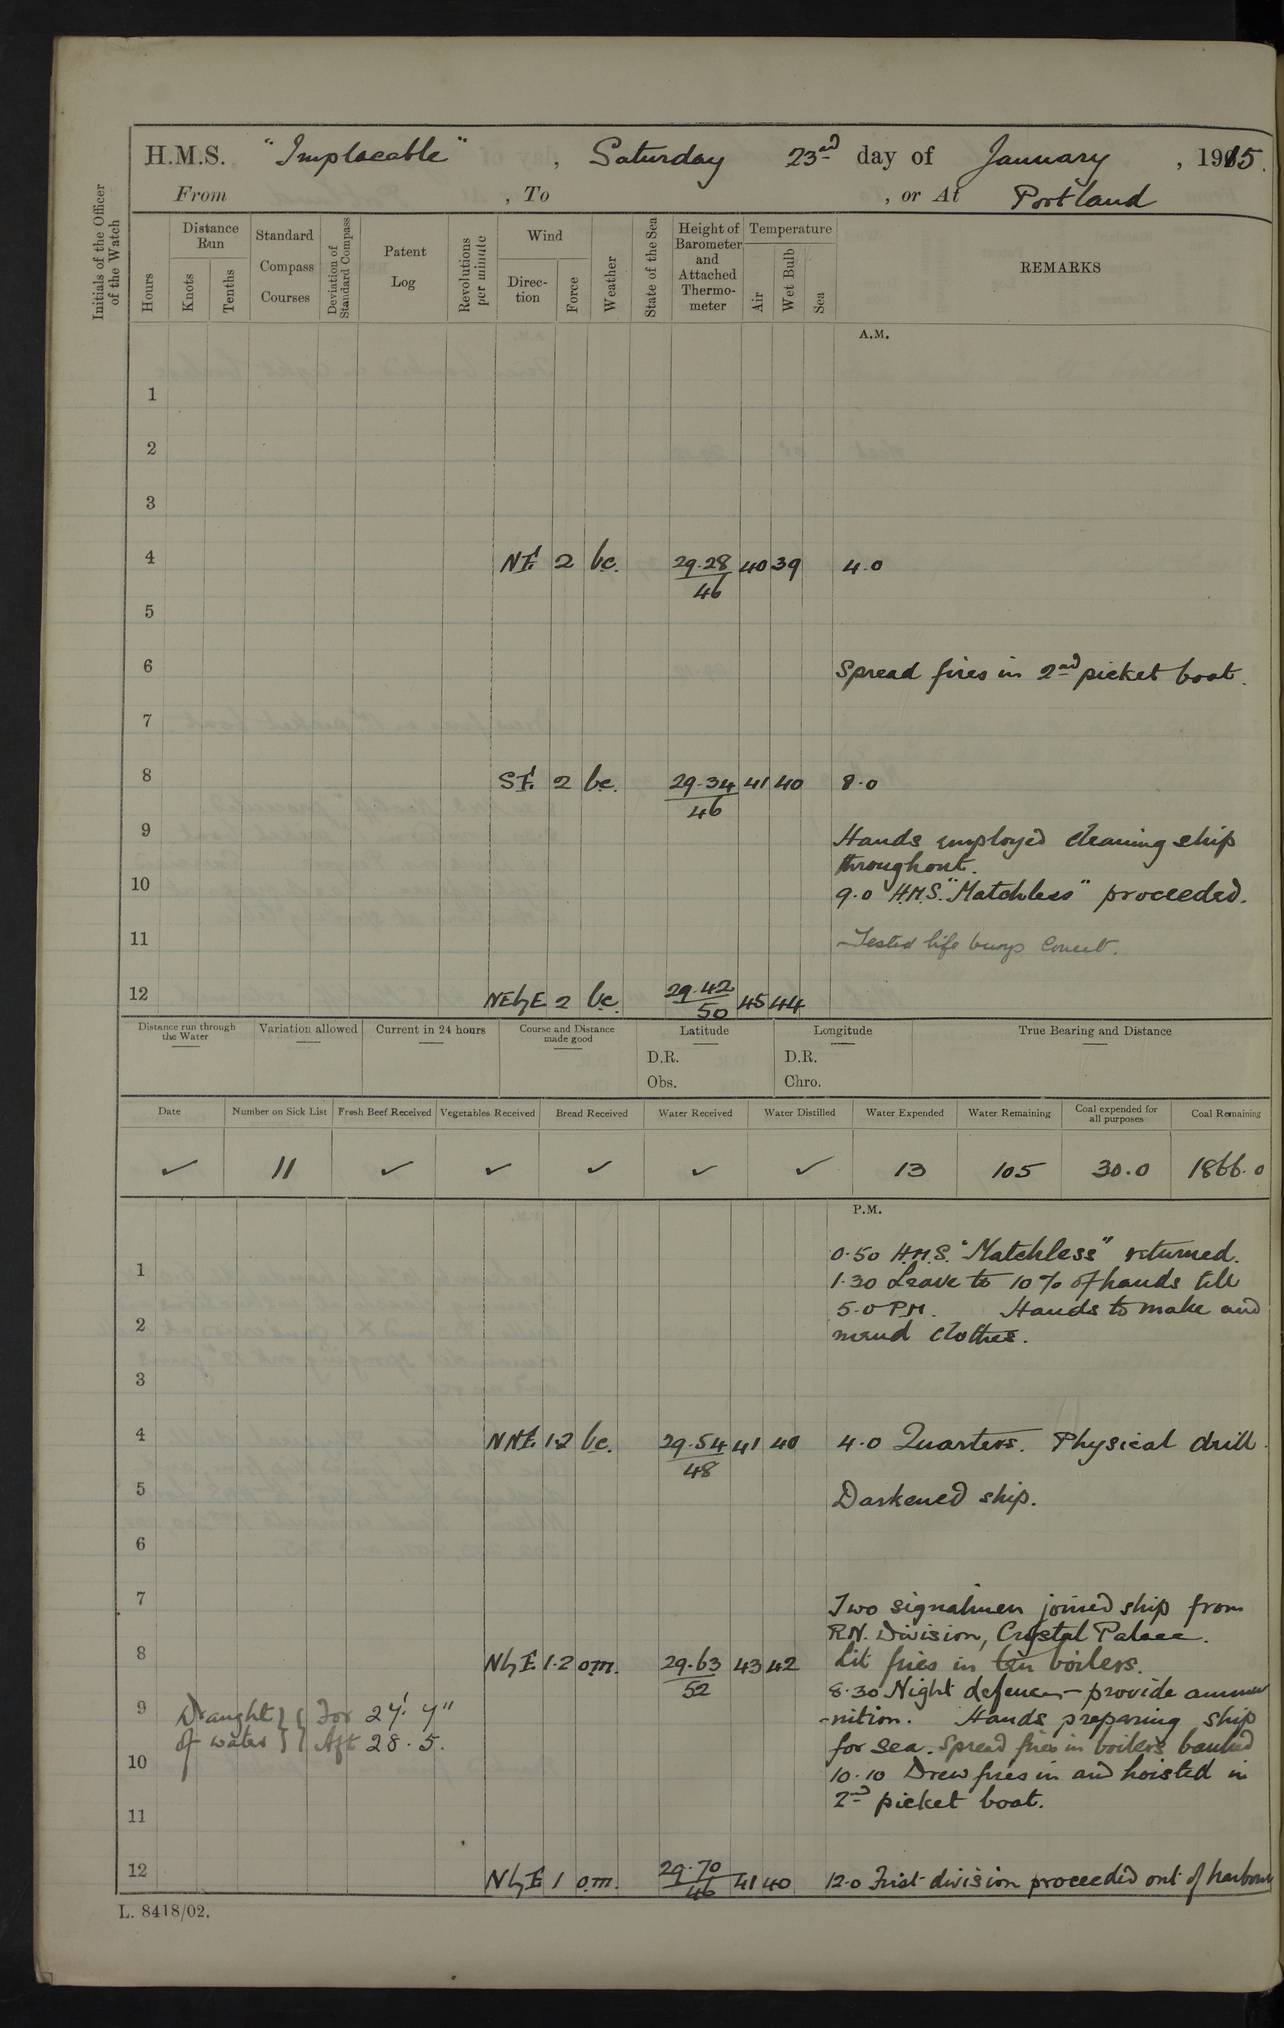 H.M.S. "Implacable", Saturday 23rd day of January, 1915.
From , To , or At Portland
Initials of the Officer of the Watch
Hours
Distance Run
Knots
Tenths
Standard Compass Courses
Deviation of Standard Compass
Patent Log
Revolutions per minute
Wind
Direction
Force
Weather
State of the Sea
Height of Barometer and Attached Thermometer
Temperature
Air
Wet Bulb
Sea
REMARKS
A.M.
1
2
3
4 NE. 2 bc. 29.28 46 40 39 4.0
5
6 Spread fires in 2nd picket boat.
7
8 SE. 2 bc. 29.34 46 41 40 8.0
9 Hands employed cleaning ship
throughout.
10 9.0 H.M.S. "Matchless" proceeded.
11 Tested life buoys correct.
12 NEbyE 2 bc. 29.42 50 45 44
Distance run through the Water
Variation allowed
Current in 24 hours
Course and Distance made good
Latitude
D.R.
Obs.
Longitude
D.R.
Chro.
True Bearing and Distance
Date Number on Sick List Fresh Beef Received Vegetables Received Bread Received Water Received Water Distilled Water Expended Water Remaining Coal expended for all purposes Coal Remaining
✓ 11 ✓ ✓ ✓ ✓ ✓ 13 105 30.0 1866.0
P.M.
0.50 H.M.S. "Matchless" returned.
1 1.30 Leave to 10% of hands till
5.0 PM. Hands to make and
2 mend clothes.
3
4 NNE. 1.2 bc. 29.54 48 41 40 4.0 Quarters. Physical drill.
5 Darkened ship.
6
7 Two signalmen joined ship from
R.N. Division, Crystal Palace.
8 NbyE. 1.2 om. 29.63 52 43 42 Lit fires in ten boilers.
8.30 Night defence - provide ammu
9 Draught of water For 27' 7" Aft 28.5. -nition. Hands preparing ship
for sea. Spread fires in boilers banked
10 10.10 Drew fires in and hoisted in
2nd picket boat.
11
12 NbyE 1 om. 29.70 46 41 40 12.0 First division proceeded out of harbour
L. 8418/02.